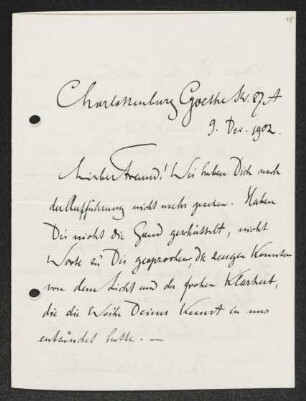 18
Charlottenburg Goethe Str. 87 A
9. Dez. 1902.
Lieber Freund! Wir haben Dich nach
der Aufführung nicht mehr gesehen. Haben
Dir nicht die Hand geschüttelt, nicht
Worte zu Dir gesprochen, die zeugen konnten
von dem Licht und der frohen Klarheit,
die die Weihe Deiner Kunst in uns
entzündet hatte. —